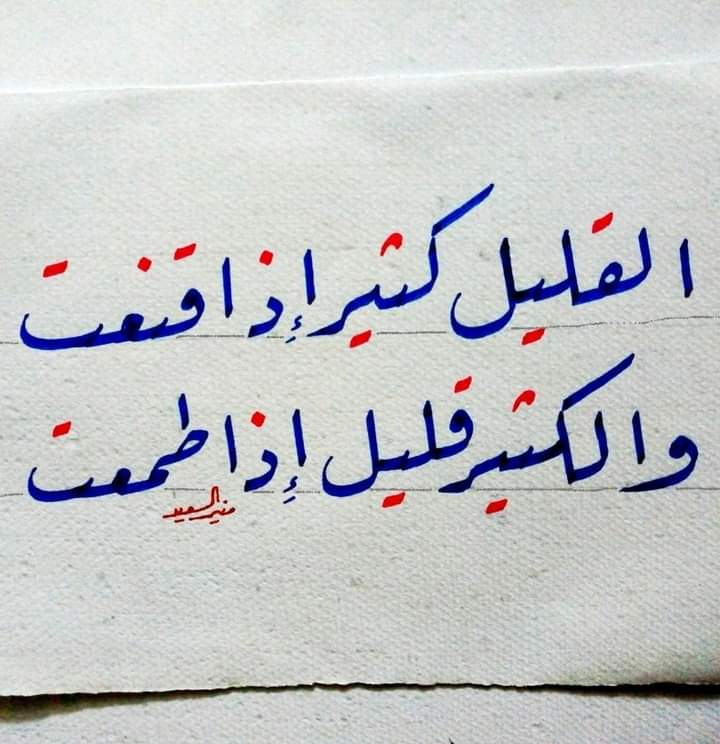 القليل كثير إذا قنعت
والكثير قليل إذا طمعت
منير السعيد